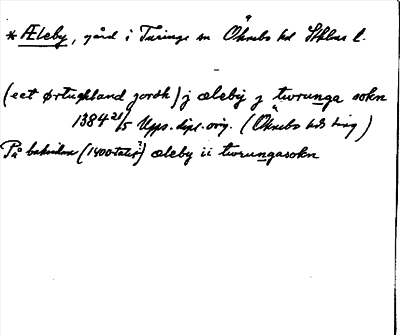 * Æleby, gård i Turinge sn Öknebo hd Sthlms l.
(eet ørtughland jordh) j æleby j tworunga sokn
1384 21/5 Upps. dipl. orig. (Öknebo hds ting)
På baksidan (1400-talet?) æleby ii tworungasokn